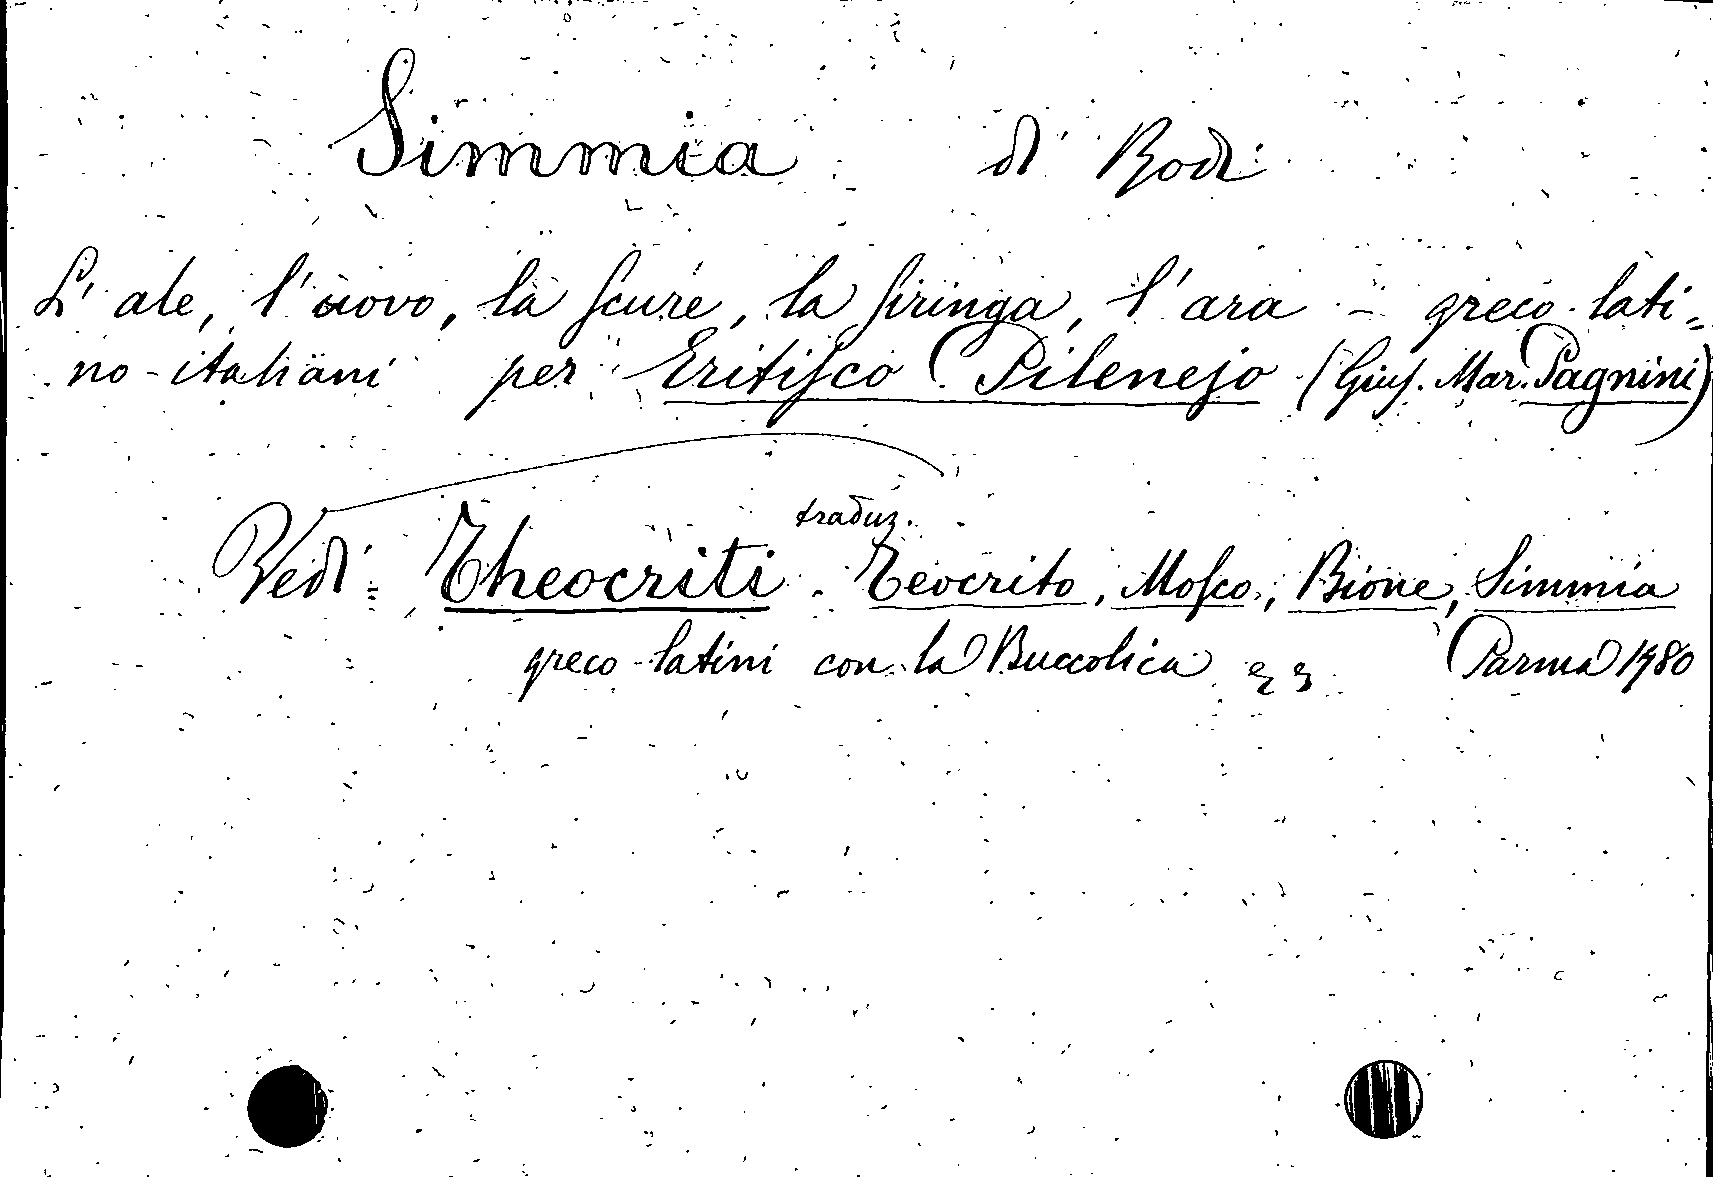 Simmia di Rodi
L'ale, l'uovo, la scure, la siringa, l'ara - greco-lati=
no-italiani per Eritisco Pilenejo (Gius. Mar. Pagnini)
traduz.
Vedi: Theocriti. Teocrito, Mosco, Bione, Simmia
greco-latini con la Buccolica Parma 1780